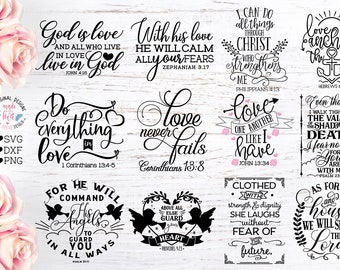 God is love
AND ALL WHO LIVE
IN LOVE
live in God
JOHN 4:16
With his love
HE WILL CALM
ALL your FEARS
ZEPHANIAH 3:17
I CAN DO
ALL things
THROUGH
CHRIST
WHO
strengthens
ME
PHILIPPIANS 4:13
love
anchors
the
HEBREWS
SVG
DXF
PNG
Do
everything
in
love
1 Corinthians 13:4-5
love
never
fails
Corinthians 13:8
love
ONE ANOTHER
LIKE I
HAVE
JOHN 13:34
Even though
I walk through
THE VALLEY
of the
SHADOW
DEATH
FOR HE WILL
COMMAND
His
angels
TO
GUARD YOU
IN ALL WAYS
ABOVE ALL ELSE
GUARD
your
HEART
CLOTHED
strength & dignity
SHE LAUGHS
WITHOUT
FEAR OF
the
future.
AS FOR
me and
house
WE WILL SERVE
THE
Lord